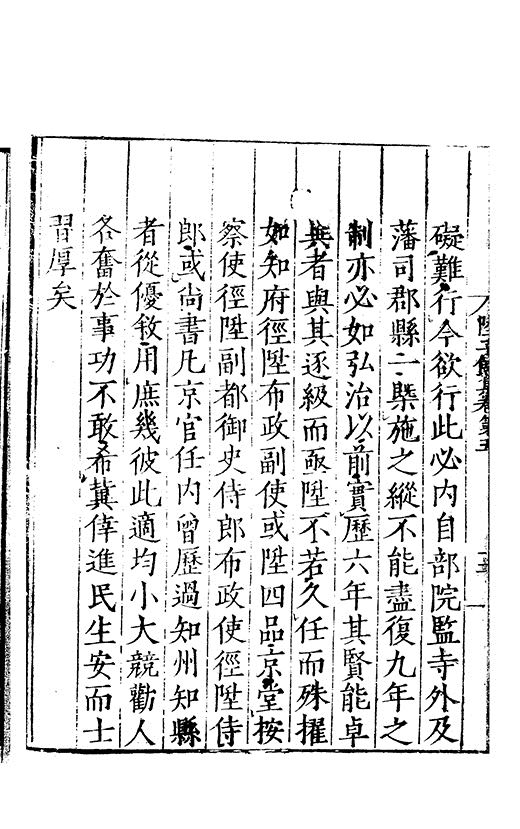 礙難行今欲行此必内自部院監寺外及
藩司郡縣一槩施之縱不能盡復九年之
制亦必如弘治以前實歷六年其賢能卓
異者與其逐級而亟陞不若久任而殊擢
如知府徑陞布政副使或陞四品京堂按
察使徑陞副都御史侍郎布政使徑陞侍
郎或尚書凡京官任内曾歷過知州知縣
者從優敘用庶幾彼此適均小大競勸人
各奮於事功不敢希冀倖進民生安而士
習厚矣